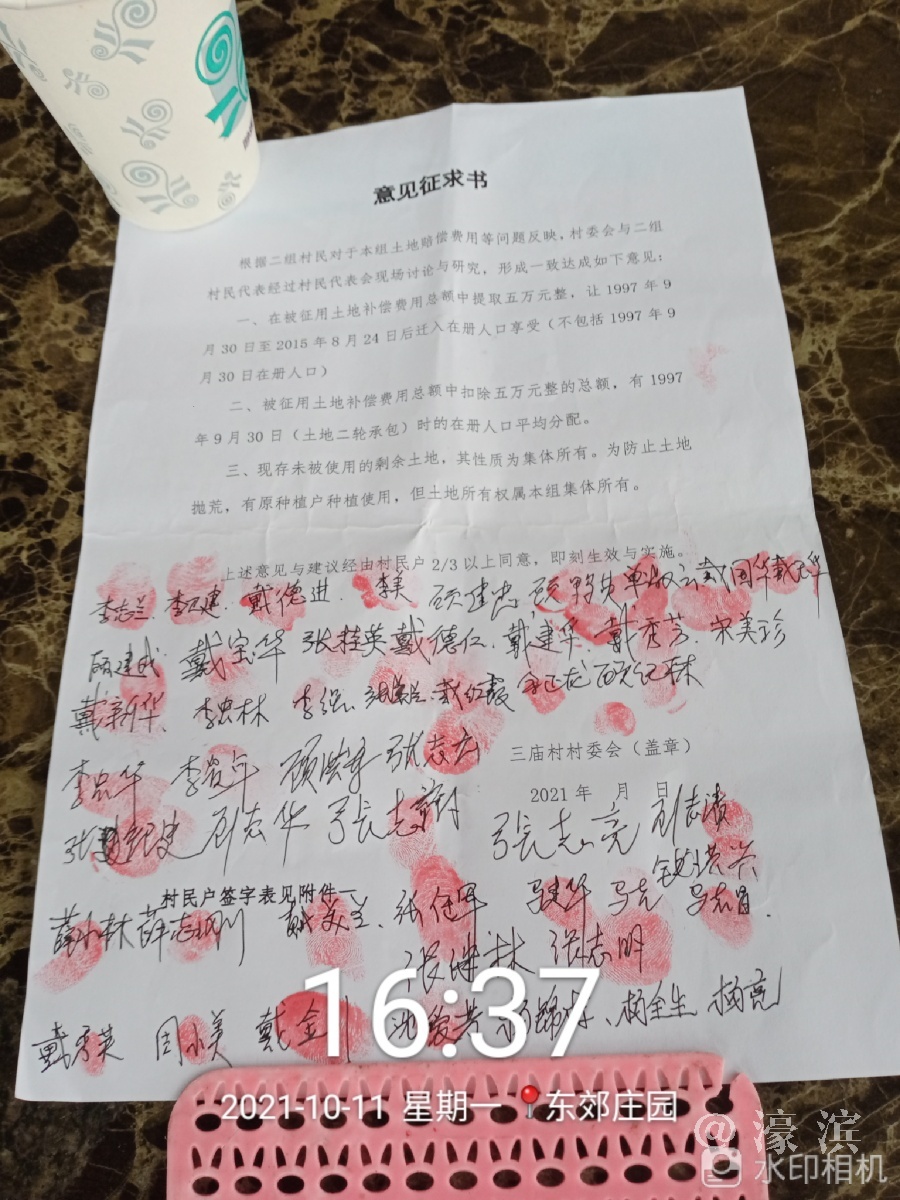 意见征求书
根据二组村民对于本组土地赔偿费用等问题反映，村委会与二组
村民代表经过村民代表会现场讨论与研究，形成一致达成如下意见：
一、在被征用土地补偿费用总额中提取五万元整，让 1997 年 9
月 30 日至 2015 年 8 月 24 日后迁入在册人口享受（不包括 1997 年 9
月 30 日在册人口）
二、被征用土地补偿费用总额中扣除五万元整的总额，有 1997
年 9 月 30 日（土地二轮承包）时的在册人口平均分配。
三、现存未被使用的剩余土地，其性质为集体所有。为防止土地
抛荒，有原种植户种植使用，但土地所有权属本组集体所有。
上述意见与建议经由村民户 2/3 以上同意，即刻生效与实施。
李志兰 李卫建 戴德进 李美 顾建忠 戴国华
顾建成 戴宝华 张桂英 戴德仁 戴建华 戴秀芳 宋美珍
戴新华 李忠林 李强 戴红霞
李品华 李爱军 顾洪章 张志方
三庙村村委会（盖章）
2021 年 月 日
刘志华 张志新 张志亮 刘志清
钱洪兴
村民户签字表见附件一
薛小林 薛志刚 戴美兰 张佳军 马建华 马克 马志昌
张继林 张志明
戴秀英 周小美 戴金刚 沈爱芳 杨金生 杨亮
16:37
2021-10-11 星期一 东郊庄园
@濠滨
水印相机